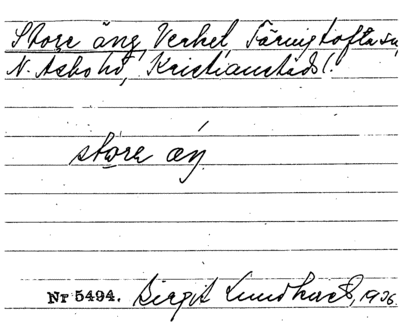 Store äng, Verkel Färingtofta sn,
N. Åsbo hd, Kristianstads l.
store äŋ
Nr 5494. Birgit Lundh 1926.